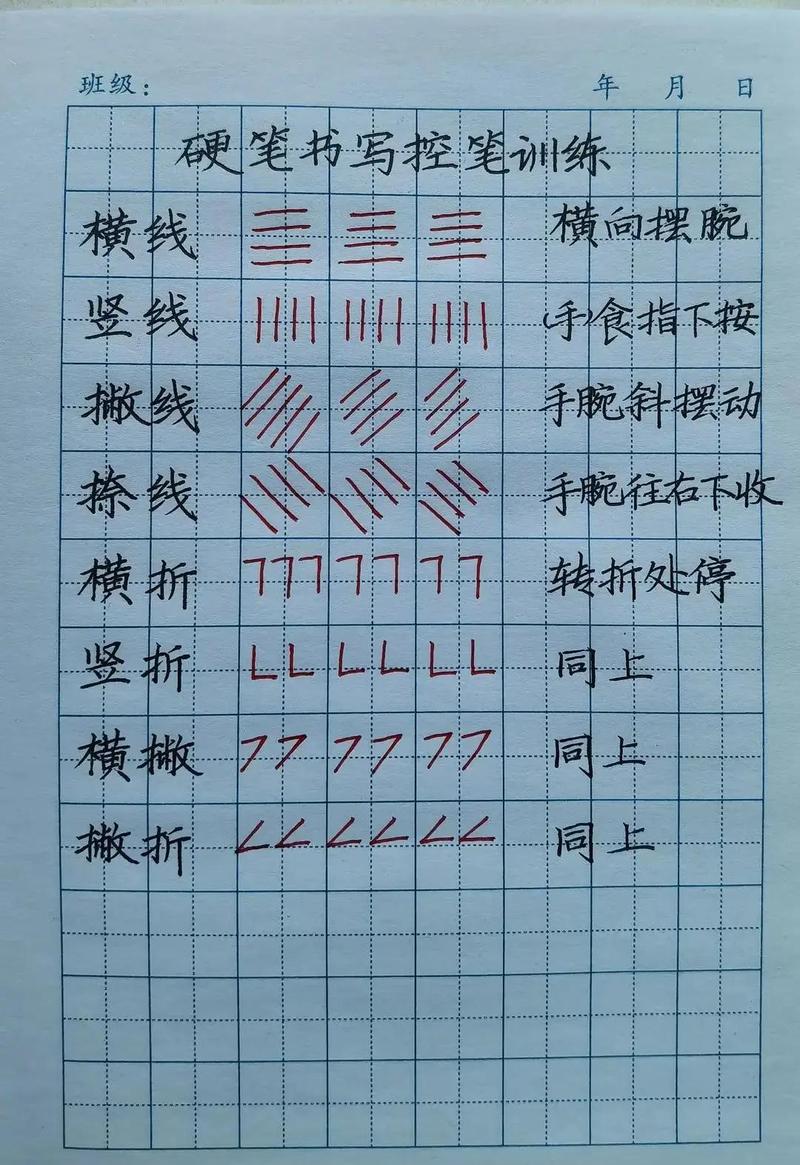 班级： 年 月 日
硬笔书写控笔训练
横线 横向摆腕
竖线 （手）食指下按
撇线 手腕斜摆动
捺线 手腕往右下收
横折 转折处停
竖折 同上
横撇 同上
撇折 同上